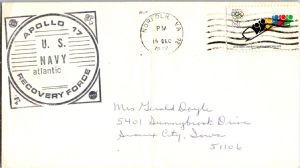 APOLLO 17
U. S.
NAVY
atlantic
RECOVERY FORCE
NORFOLK, VA
PM
DEC
Mrs Gerald Doyle
5401 Sunnybrook Drive
Sioux City, Iowa
51106